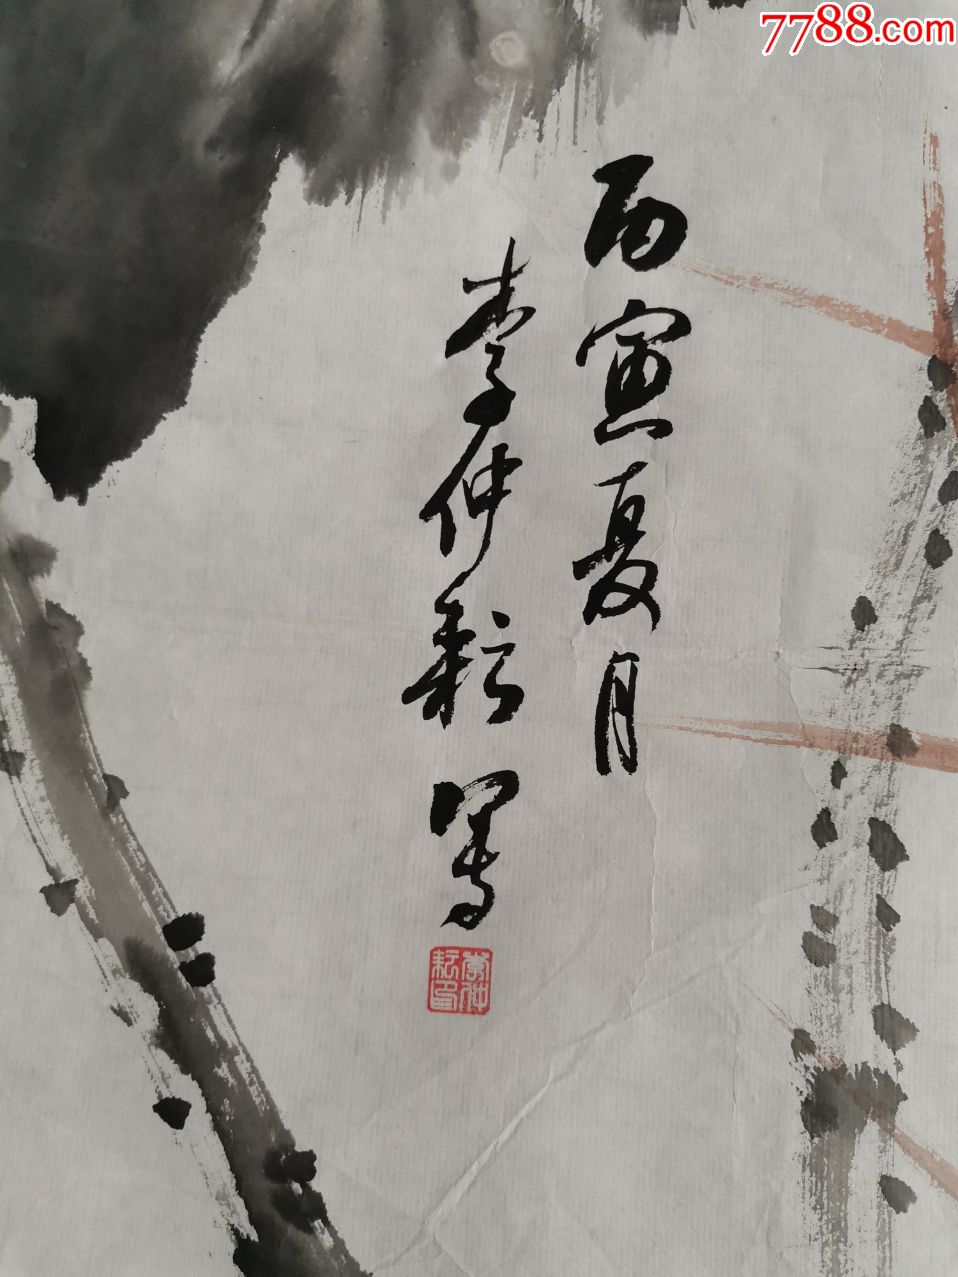 7788.com
丙寅夏月
李仲耘写
李仲
耘印